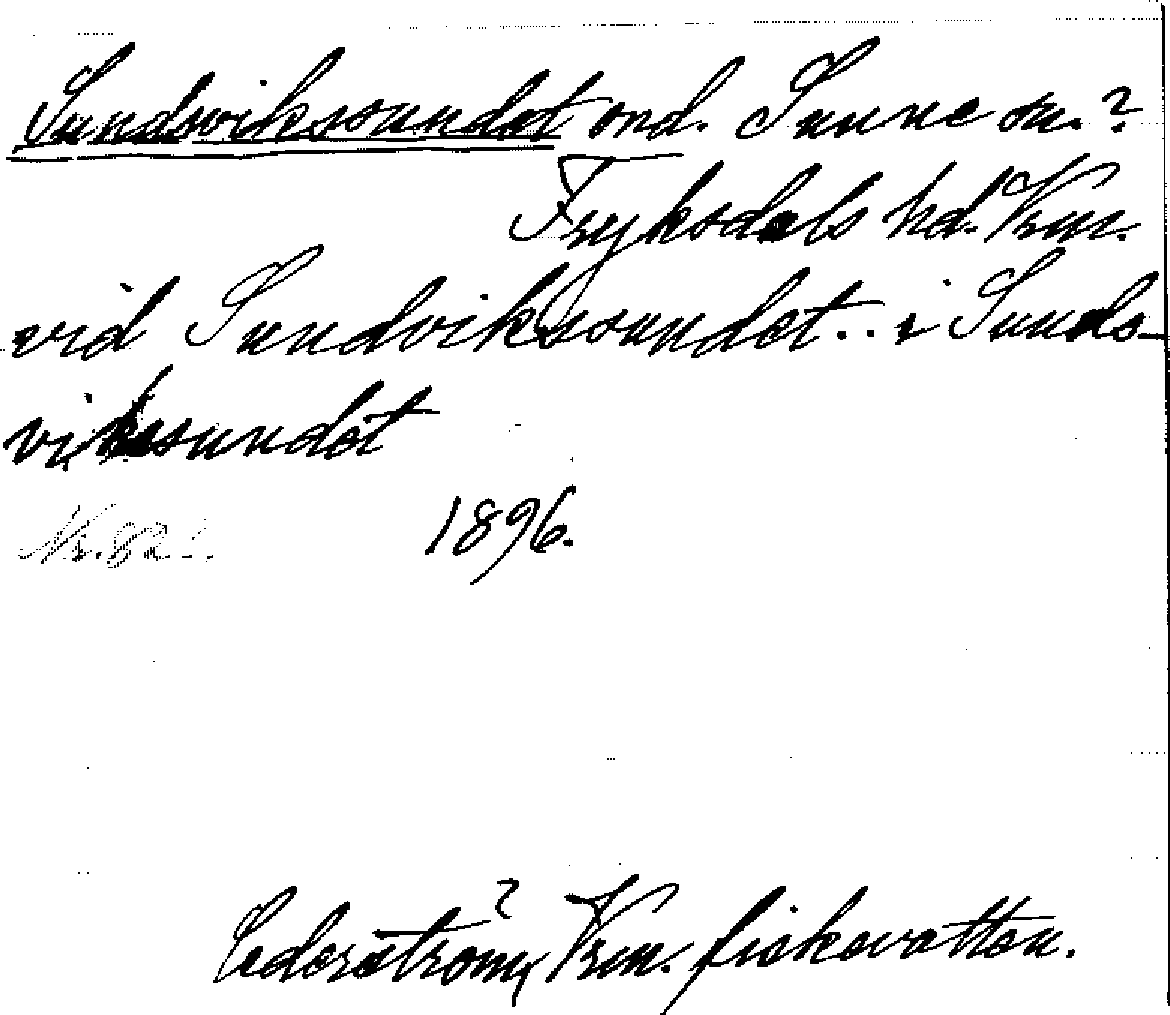 Sundsvikssundet ond. Sunne sn.?
Fryksdals hd. Vrm.
vid Sundvikssundet.. i Sunds-
vikssundet
Nr. 82 1896.
Cederström, Vrm. fiskevatten.